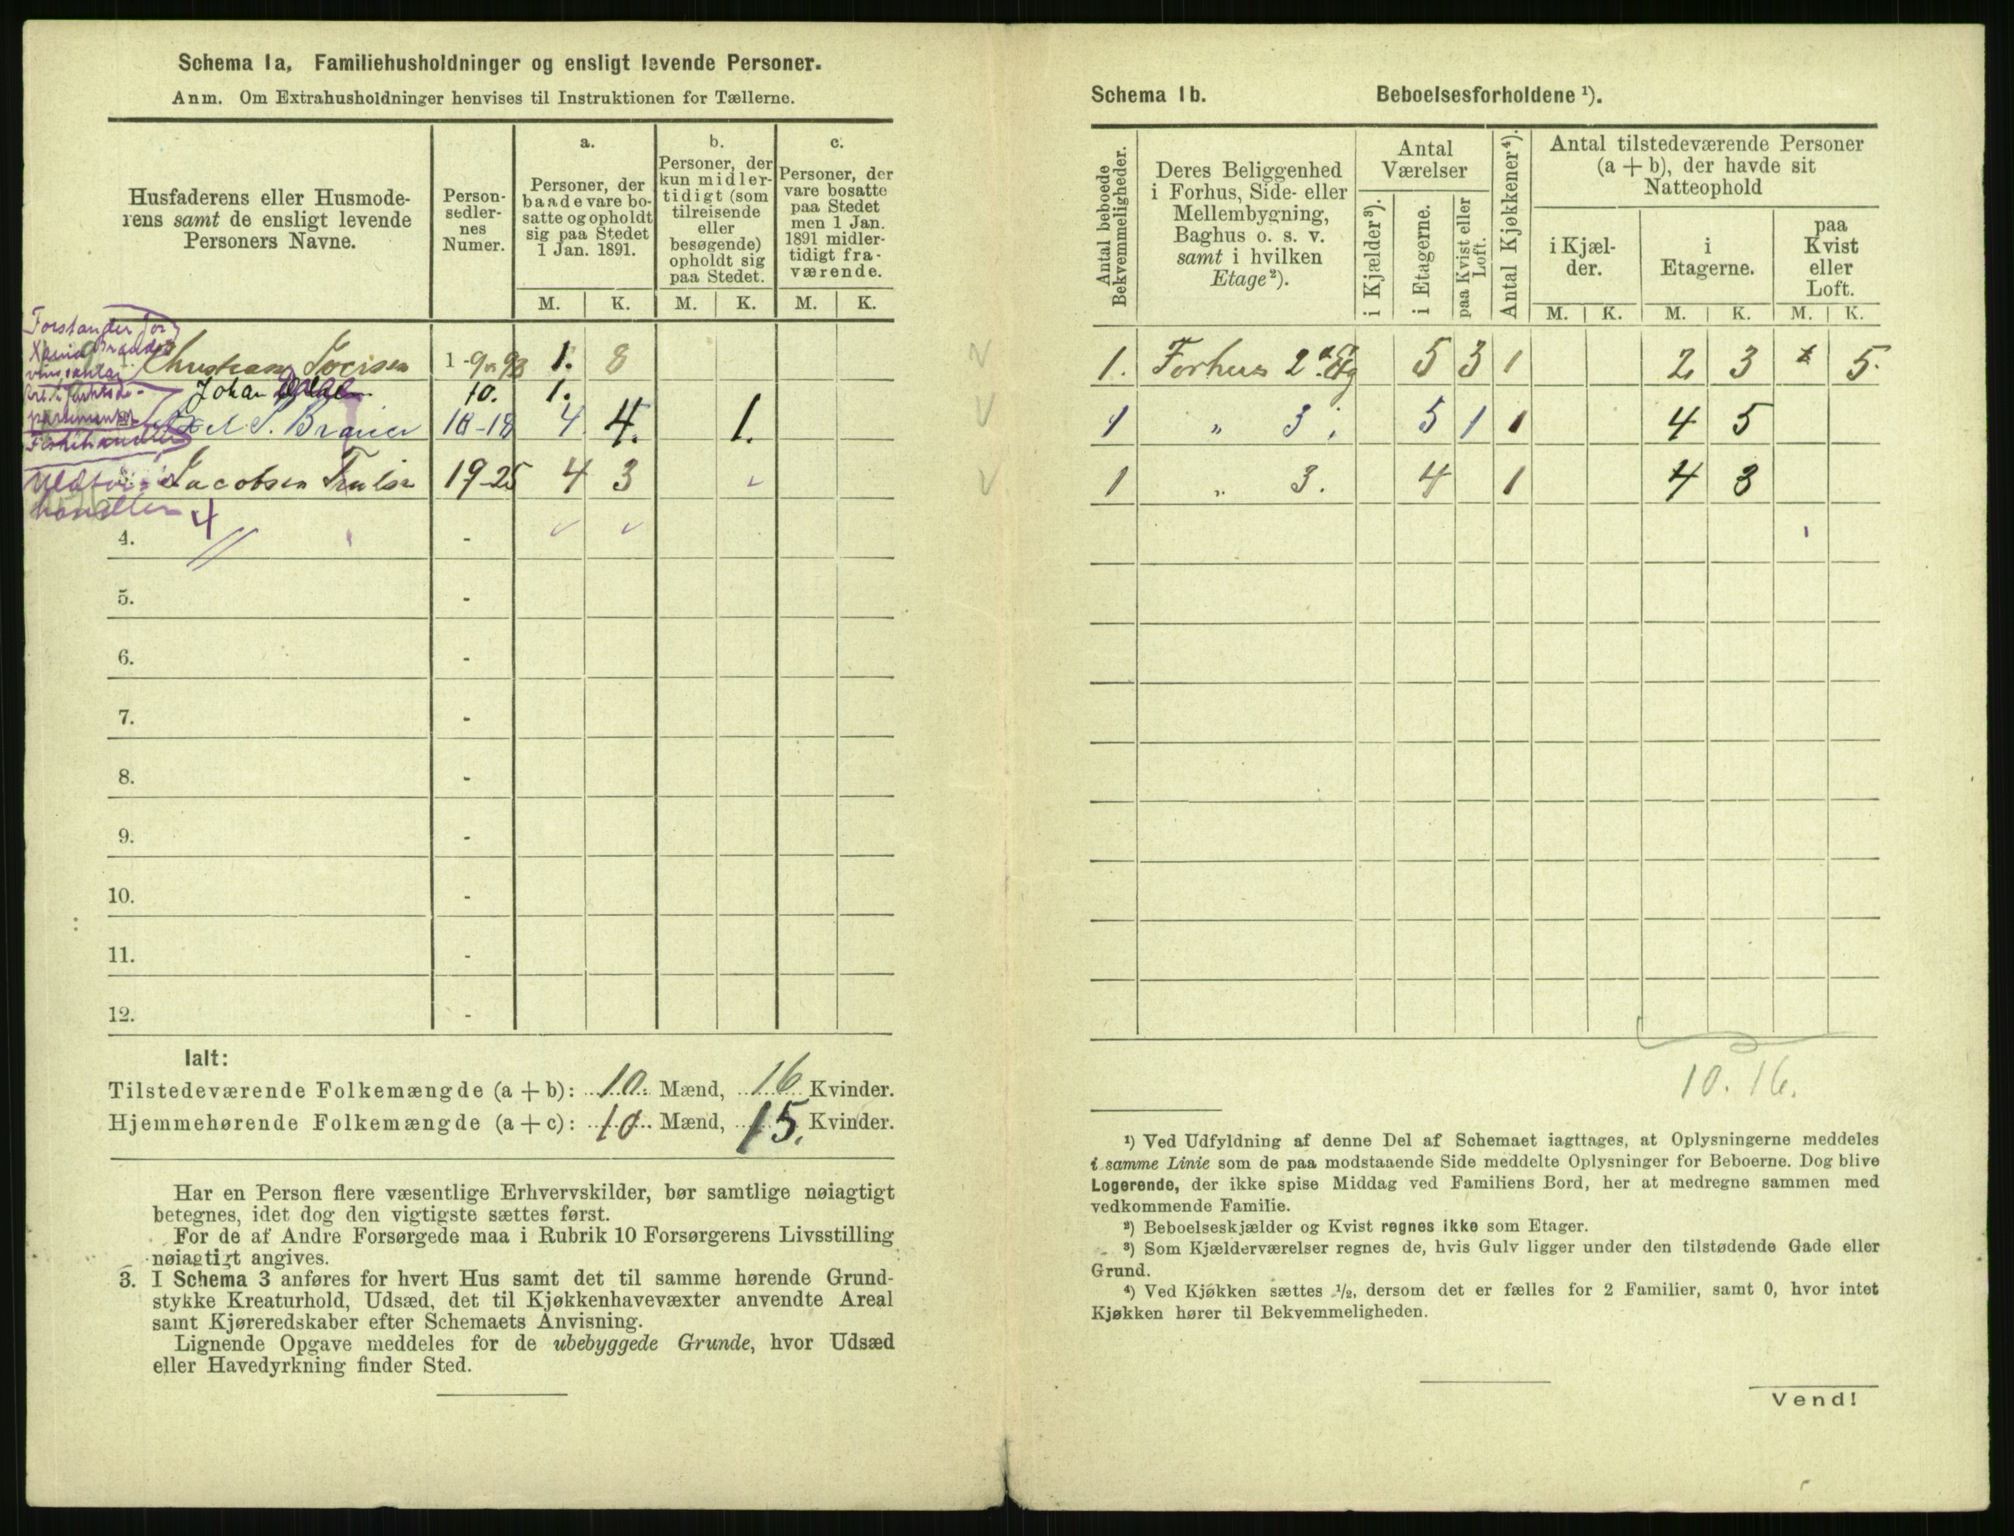 Schema 1a. Familiehusholdninger og ensligt levende Personer.
Anm. Om Extrahusholdninger henvises til Instruktionen for Tællerne.
Husfaderens eller Husmode-
rens samt de ensligt levende
Personers Navne.
Person-
sedler-
nes
Numer.
a.
Personer, der
baade vare bo-
satte og opholdt
sig paa Stedet
1 Jan. 1891.
b.
Personer, der
kun midler-
tidigt (som
tilreisende
eller
besøgende)
opholdt sig
paa Stedet.
c.
Personer, der
vare bosatte
paa Stedet
men 1 Jan.
1891 midler-
tidigt fra-
værende.
M. K. M. K. M. K.
Forstander for
Christian 1-9 1. 8
Johan 10. 1.
S. 4. 4. 1.
Jacobsen 19-25 4 3
handler 4
4. -
5. -
6. -
7. -
8. -
9. -
10. -
11. -
12. -
Ialt:
Tilstedeværende Folkemængde (a + b): 10. Mænd, 16 Kvinder.
Hjemmehørende Folkemængde (a + c): 10 Mænd, 15. Kvinder.
Har en Person flere væsentlige Erhvervskilder, bør samtlige nøiagtigt
betegnes, idet dog den vigtigste sættes først.
For de af Andre Forsørgede maa i Rubrik 10 Forsørgerens Livsstilling
nøiagtigt angives.
3. I Schema 3 anføres for hvert Hus samt det til samme hørende Grund-
stykke Kreaturhold, Udsæd, det til Kjøkkenhavevæxter anvendte Areal
samt Kjøreredskaber efter Schemaets Anvisning.
Lignende Opgave meddeles for de ubebyggede Grunde, hvor Udsæd
eller Havedyrkning finder Sted.
Schema 1b. Beboelsesforholdene ¹).
Antal beboede
Bekvemmeligheder.
Deres Beliggenhed
i Forhus, Side- eller
Mellembygning,
Baghus o. s. v.
samt i hvilken
Etage²).
Antal
Værelser
i Kjælder³).
i Etagerne.
paa Kvist eller
Loft.
Antal Kjøkkener⁴).
Antal tilstedeværende Personer
(a + b), der havde sit
Natteophold
i Kjæl-
der.
i
Etagerne.
paa
Kvist
eller
Loft.
M. K. M. K. M. K.
1. Forhus 2 Etg 5 3 1 2 3 5.
1 " 3. 5 1 1 4 5
1 " 3. 4 1 4 3
10. 16.
¹) Ved Udfyldning af denne Del af Schemaet iagttages, at Oplysningerne meddeles
i samme Linie som de paa modstaaende Side meddelte Oplysninger for Beboerne. Dog blive
Logerende, der ikke spise Middag ved Familiens Bord, her at medregne sammen med
vedkommende Familie.
²) Beboelseskjælder og Kvist regnes ikke som Etager.
³) Som Kjælderværelser regnes de, hvis Gulv ligger under den tilstødende Gade eller
Grund.
⁴) Ved Kjøkken sættes ½, dersom det er fælles for 2 Familier, samt 0, hvor intet
Kjøkken hører til Bekvemmeligheden.
Vend!